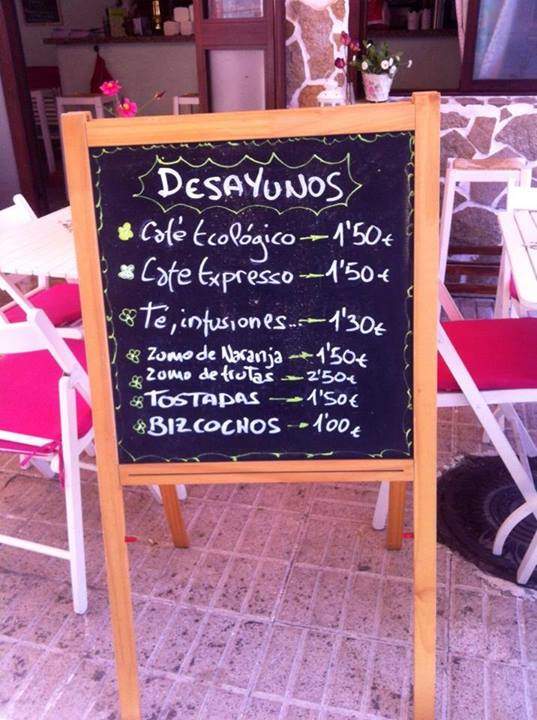 DESAYUNOS
Café Ecológico → 1'50€
Cafe Expresso → 1'50€
Te, infusiones... → 1'30€
Zumo de Naranja → 1'50€
Zumo de frutas → 2'50€
TOSTADAS → 1'50€
BIZCOCHOS → 1'00€